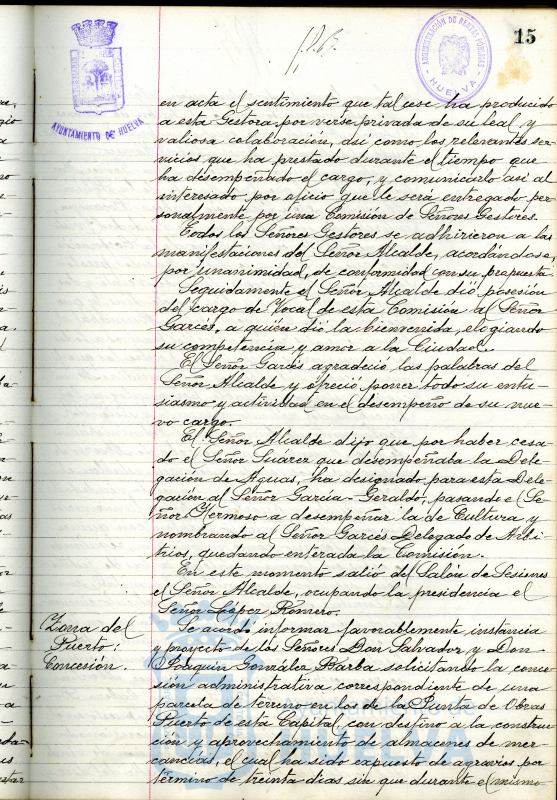 15
AYUNTAMIENTO DE HUELVA
ADMINISTRACIÓN DE RENTAS PÚBLICAS
HUELVA
en acta el sentimiento que tal cese ha producido
a esta Gestora, por verse privada de su leal y
valiosa colaboración, así como los relevantes ser-
vicios que ha prestado durante el tiempo que
ha desempeñado el cargo, y comunicarlo así al
interesado por oficio que le será entregado per-
sonalmente por una Comisión de Señores Gestores.
Todos los Señores Gestores se adhirieron a las
manifestaciones del Señor Alcalde, acordándose,
por unanimidad, de conformidad con su propuesta.
Seguidamente el Señor Alcalde dió posesión
del cargo de Vocal de esta Comisión al Señor
Garcés, a quién dió la bienvenida, elogiando
su competencia y amor a la Ciudad.
El Señor Garcés agradeció las palabras del
Señor Alcalde y ofreció poner todo su entu-
siasmo y actividad en el desempeño de su nue-
vo cargo.
El Señor Alcalde dijo que por haber cesa-
do el Señor Suárez que desempeñaba la Dele-
gación de Aguas, ha designado para esta Dele-
gación al Señor García-Geraldo, pasando el Se-
ñor Hermoso a desempeñar la de Cultura y
nombrando al Señor Garcés Delegado de Arbi-
trios, quedando enterada la Comisión.
En este momento salió del Salón de Sesiones
el Señor Alcalde, ocupando la presidencia el
Señor López Romero.
Zona del
Puerto:
Concesión.
Se acordó informar favorablemente instancia
y proyecto de los Señores Don Salvador y Don
Joaquín González Barba solicitando la conce-
sión administrativa correspondiente de una
parcela de terreno en los de la Junta de Obras
Puerto de esta Capital con destino a la construc-
ción y aprovechamiento de almacenes de mer-
cancías, el cual ha sido expuesto de agravios por
término de treinta días sin que durante el mismo
HUELVA